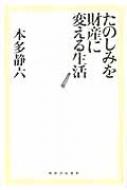 たのしみを
財産に
変える生活
本多静六